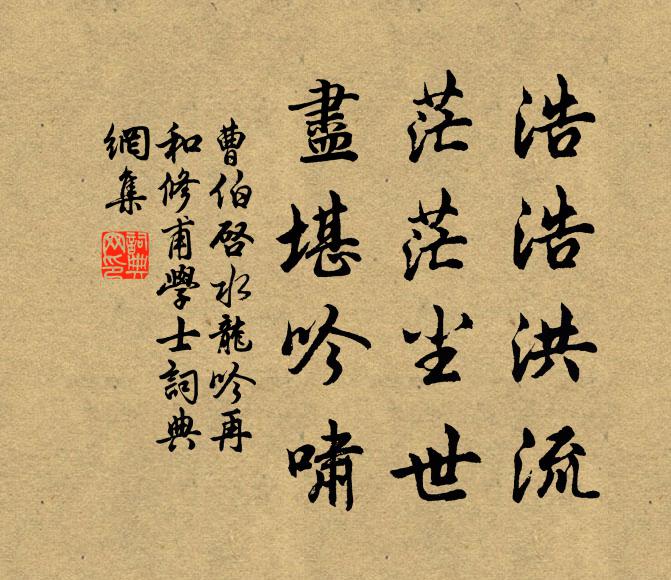 浩浩洪流
茫茫尘世
盡堪吟嘯
曹伯啓水龍吟再
和修甫學士詞典
網集
詞典
网印